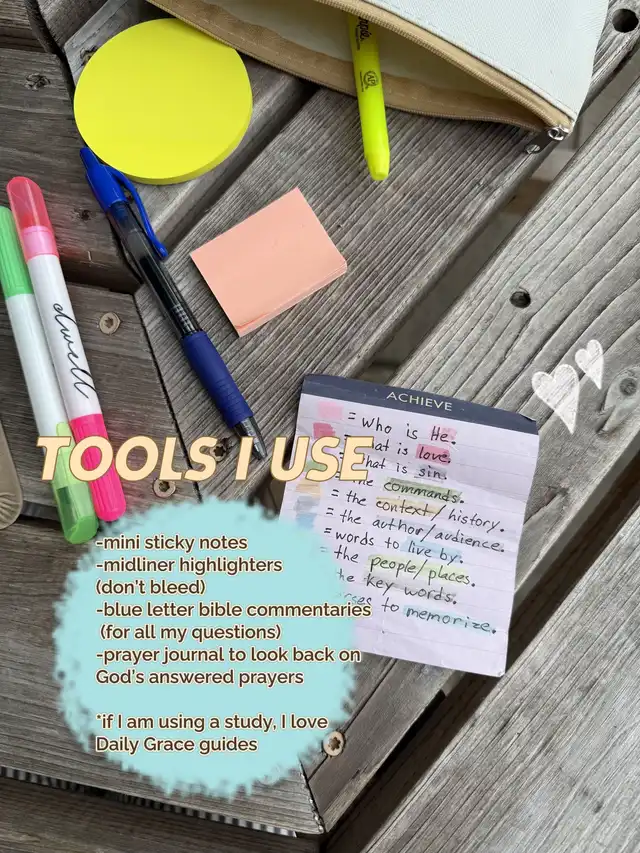 dwell
ACHIEVE
= Who is He.
what is love.
what is sin.
the commands.
= the context/history.
= the author/audience.
= words to live by.
the people/places.
the key words.
to memorize.
TOOLS I USE
-mini sticky notes
-midliner highlighters
(don't bleed)
-blue letter bible commentaries
(for all my questions)
-prayer journal to look back on
God's answered prayers
*if I am using a study, I love
Daily Grace guides